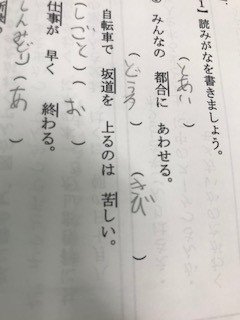 1】読みがなを書きましょう。
(とあい)
みんなの 都合に あわせる。
(どうろ) (きび)
自転車で 坂道を 上るのは 苦しい。
(しごと) (お)
仕事が 早く 終わる。
しんみどり) (あ)